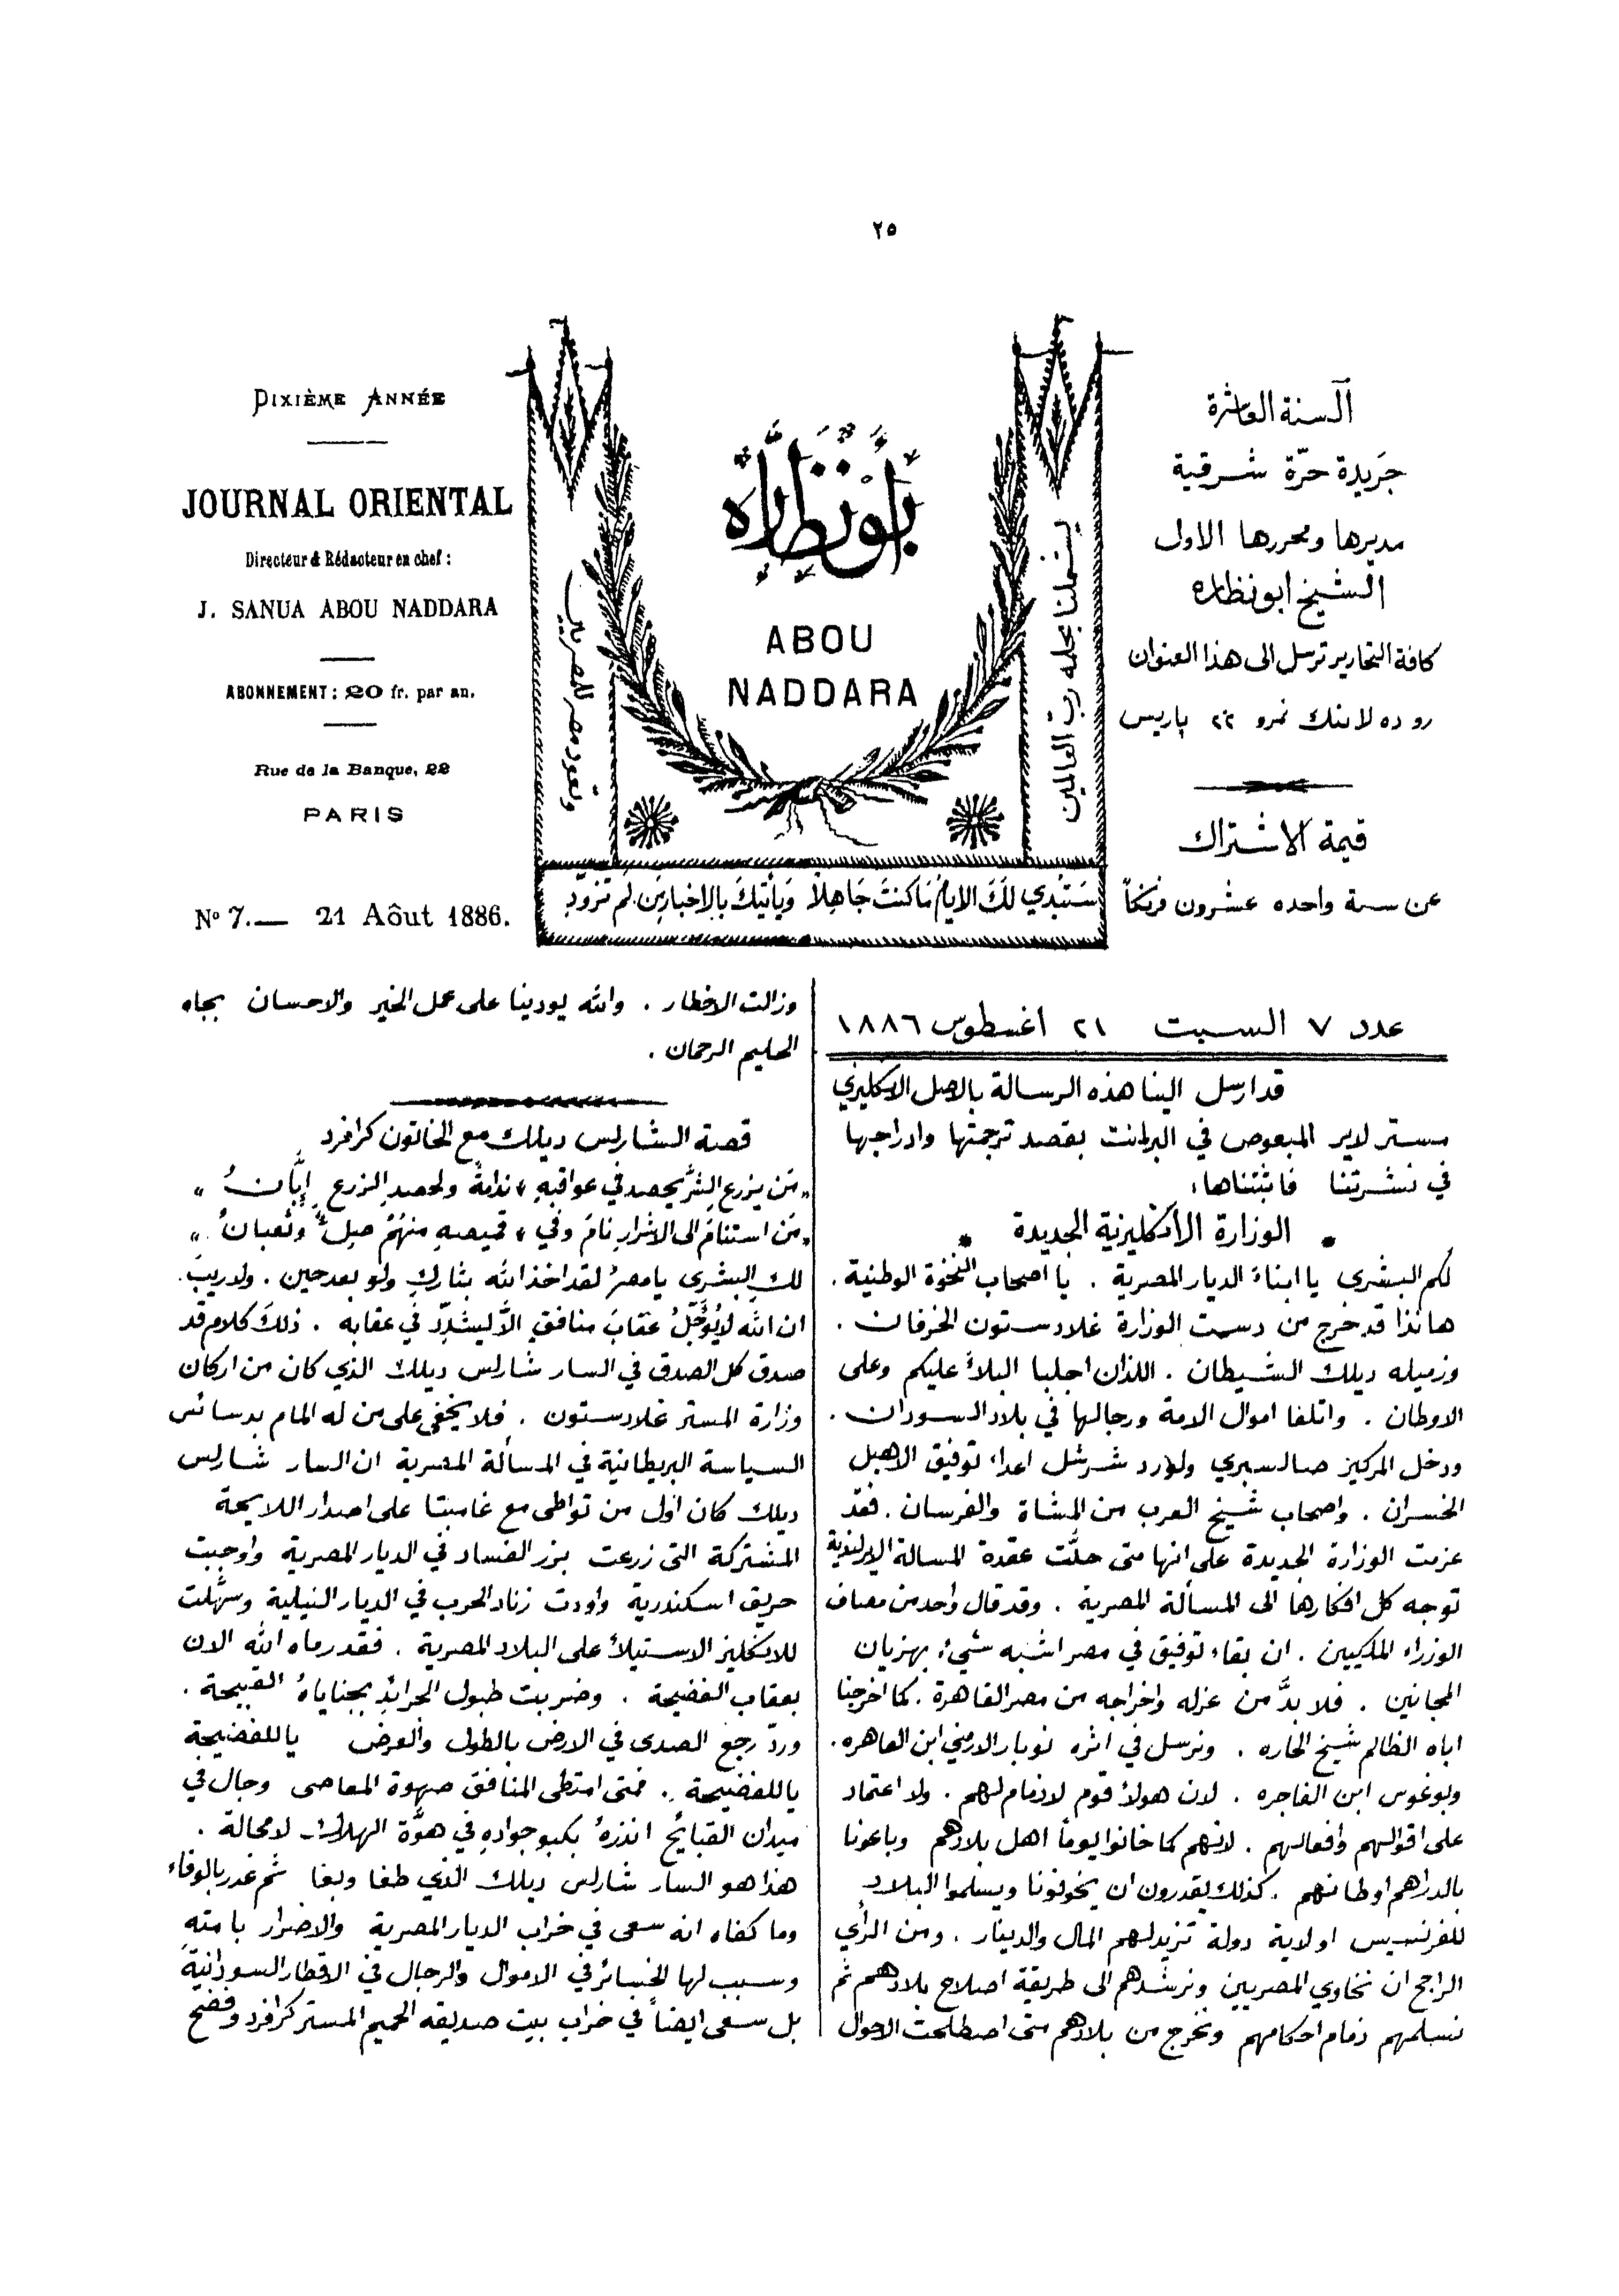 ٢٥
DIXIÈME ANNÉE
JOURNAL ORIENTAL
Directeur & Rédacteur en chef :
J. SANUA ABOU NADDARA
ABONNEMENT : 20 fr. par an.
Rue de la Banque, 22
PARIS
Nº 7.— 21 Aôut 1886.
وتعود مصر للمصريين
ابونظاره
ABOU
NADDARA
يشملنا بحلمه رب العالمين
سَتُبدي لَكَ الايامُ مَا كنتَ جَاهِلاً وَيأتيكَ بالاخبار مَن لم تزوّدِ
السنة العاشرة
جَريدة حرّة شرقية
مديرها ومحررها الاول
الشيخ ابونظاره
كافة التحارير ترسل الى هذا العنوان
رو ده لا بنك نمرو ٢٢ پاريس
قيمة الاشتراك
عن سنة واحده عشرون فرنكاً
عدد ٧ السبت ٢١ اغسطوس ١٨٨٦
قد ارسل الينا هذه الرسالة بالاصل الانكليزي
مستر لابر المبعوص في البرلمانت بقصد ترجمتها وادراجها
في نشرتنا فاثبتناها
* الوزارة الأنكليزية الجديدة *
لكم البشرى يا ابناء الديار المصرية . يا اصحاب النخوة الوطنية .
هانذا قد خرج من دست الوزارة غلادستون الخرفان .
وزميله ديلك الشيطان . اللذان اجلبا البلاء عليكم وعلى
الاوطان . واتلفا اموال الامة ورجالها في بلاد السودان .
ودخل المركيز صالسبري ولورد شرشل اعداء توفيق الاهبل
الخسران . واصحاب شيخ العرب من المشاة والفرسان . فقد
عزمت الوزارة الجديدة على انها متى حلَّت عقدة المسالة الايرلندية
توجه كل افكارها الى المسألة المصرية . وقد قال واحد من مصاف
الوزراء الملكيين . ان بقاء توفيق في مصر اشبه شيء بهزيان
المجانين . فلا بدَّ من عزله واخراجه من مصر القاهرة . كما اخرجنا
اباه الظالم شيخ الحاره . ونرسل في اثره نوبار الارمني ابن العاهره .
وبوغوس ابن الفاجره . لان هولاء قوم لا زمام لهم . ولا اعتماد
على اقوالهم وافعالهم . لانهم كما خانوا يوماً اهل بلادهم وباعونا
بالدراهم اوطانهم . كذلك يقدرون ان يخونونا ويسلموا البلاد
للفرنسيس او لاية دولة تزيد لهم المال والدينار . ومن الرأي
الراجح ان نخاوي المصريين ونرشدهم الى طريقة اصلاح بلادهم ثم
نسلمهم زمام احكامهم ونخرج من بلادهم متى اصطلحت الاحوال
وزالت الاخطار . والله يودينا على عمل الخير والاحسان بجاه
الحليم الرحمان .
قصة الشارلس ديلك مع الخاتون كرافرد
„ مَن يزرع الشرَّ يحصد في عواقبهِ ، ندامةً ولحصدِ الزرع إبَّانُ „
„ مَن استنامَ الى الاشرار نامَ وفي ، قميصهِ منهُمُ صِلٌّ وثعبانُ . „
لكِ البشرى يا مصرُ لقد اخذ الله بثاركِ ولو بعد حين . ولا ريبَ .
ان الله لا يُوَجّلُ عقابَ منافق الاَّ ليشدِّد في عقابه . ذلكَ كلام قد
صدق كل الصدق في السار شارلس ديلك الذي كان من اركان
وزارة المستر غلادستون . فلا يخفى على من له المام بدسائس
السياسة البريطانية في المسألة المصرية ان السار شارلس
ديلك كان اول من تواطى مع غامبتا على اصدار اللايحة
المشتركة التى زرعت بزر الفساد في الديار المصرية واوجبت
حريق اسكندرية واودت زناد الحرب في الديار النيلية وسهَّلت
للانكليز الاستيلاَ على البلاد المصرية . فقد رماه الله الان
بعقاب الفضيحة . وضربت طبول الجرائدِ بجناياهُ القبيحة .
وردّ رجع الصدى في الارض بالطول والعرض ياللفضيحة
ياللفضيحة . فمتى امتطى المنافق صهوة المعاصى وجال في
ميدان القبايح انذرهُ بكبو جوادهِ في هوَّة الهلاك لا محالة .
هذا هو السار شارلس ديلك الذي طغا وبغا ثم غدر بالوفاء
وما كفاه انه سعى في خراب الديار المصرية والاضرار بامتهِ
وسبب لها الخسائر في الاموال والرجال في الاقطار السودانيَّة
بل سعى ايضاً في خراب بيت صديقه الحميم المستر كرافرد وفضح